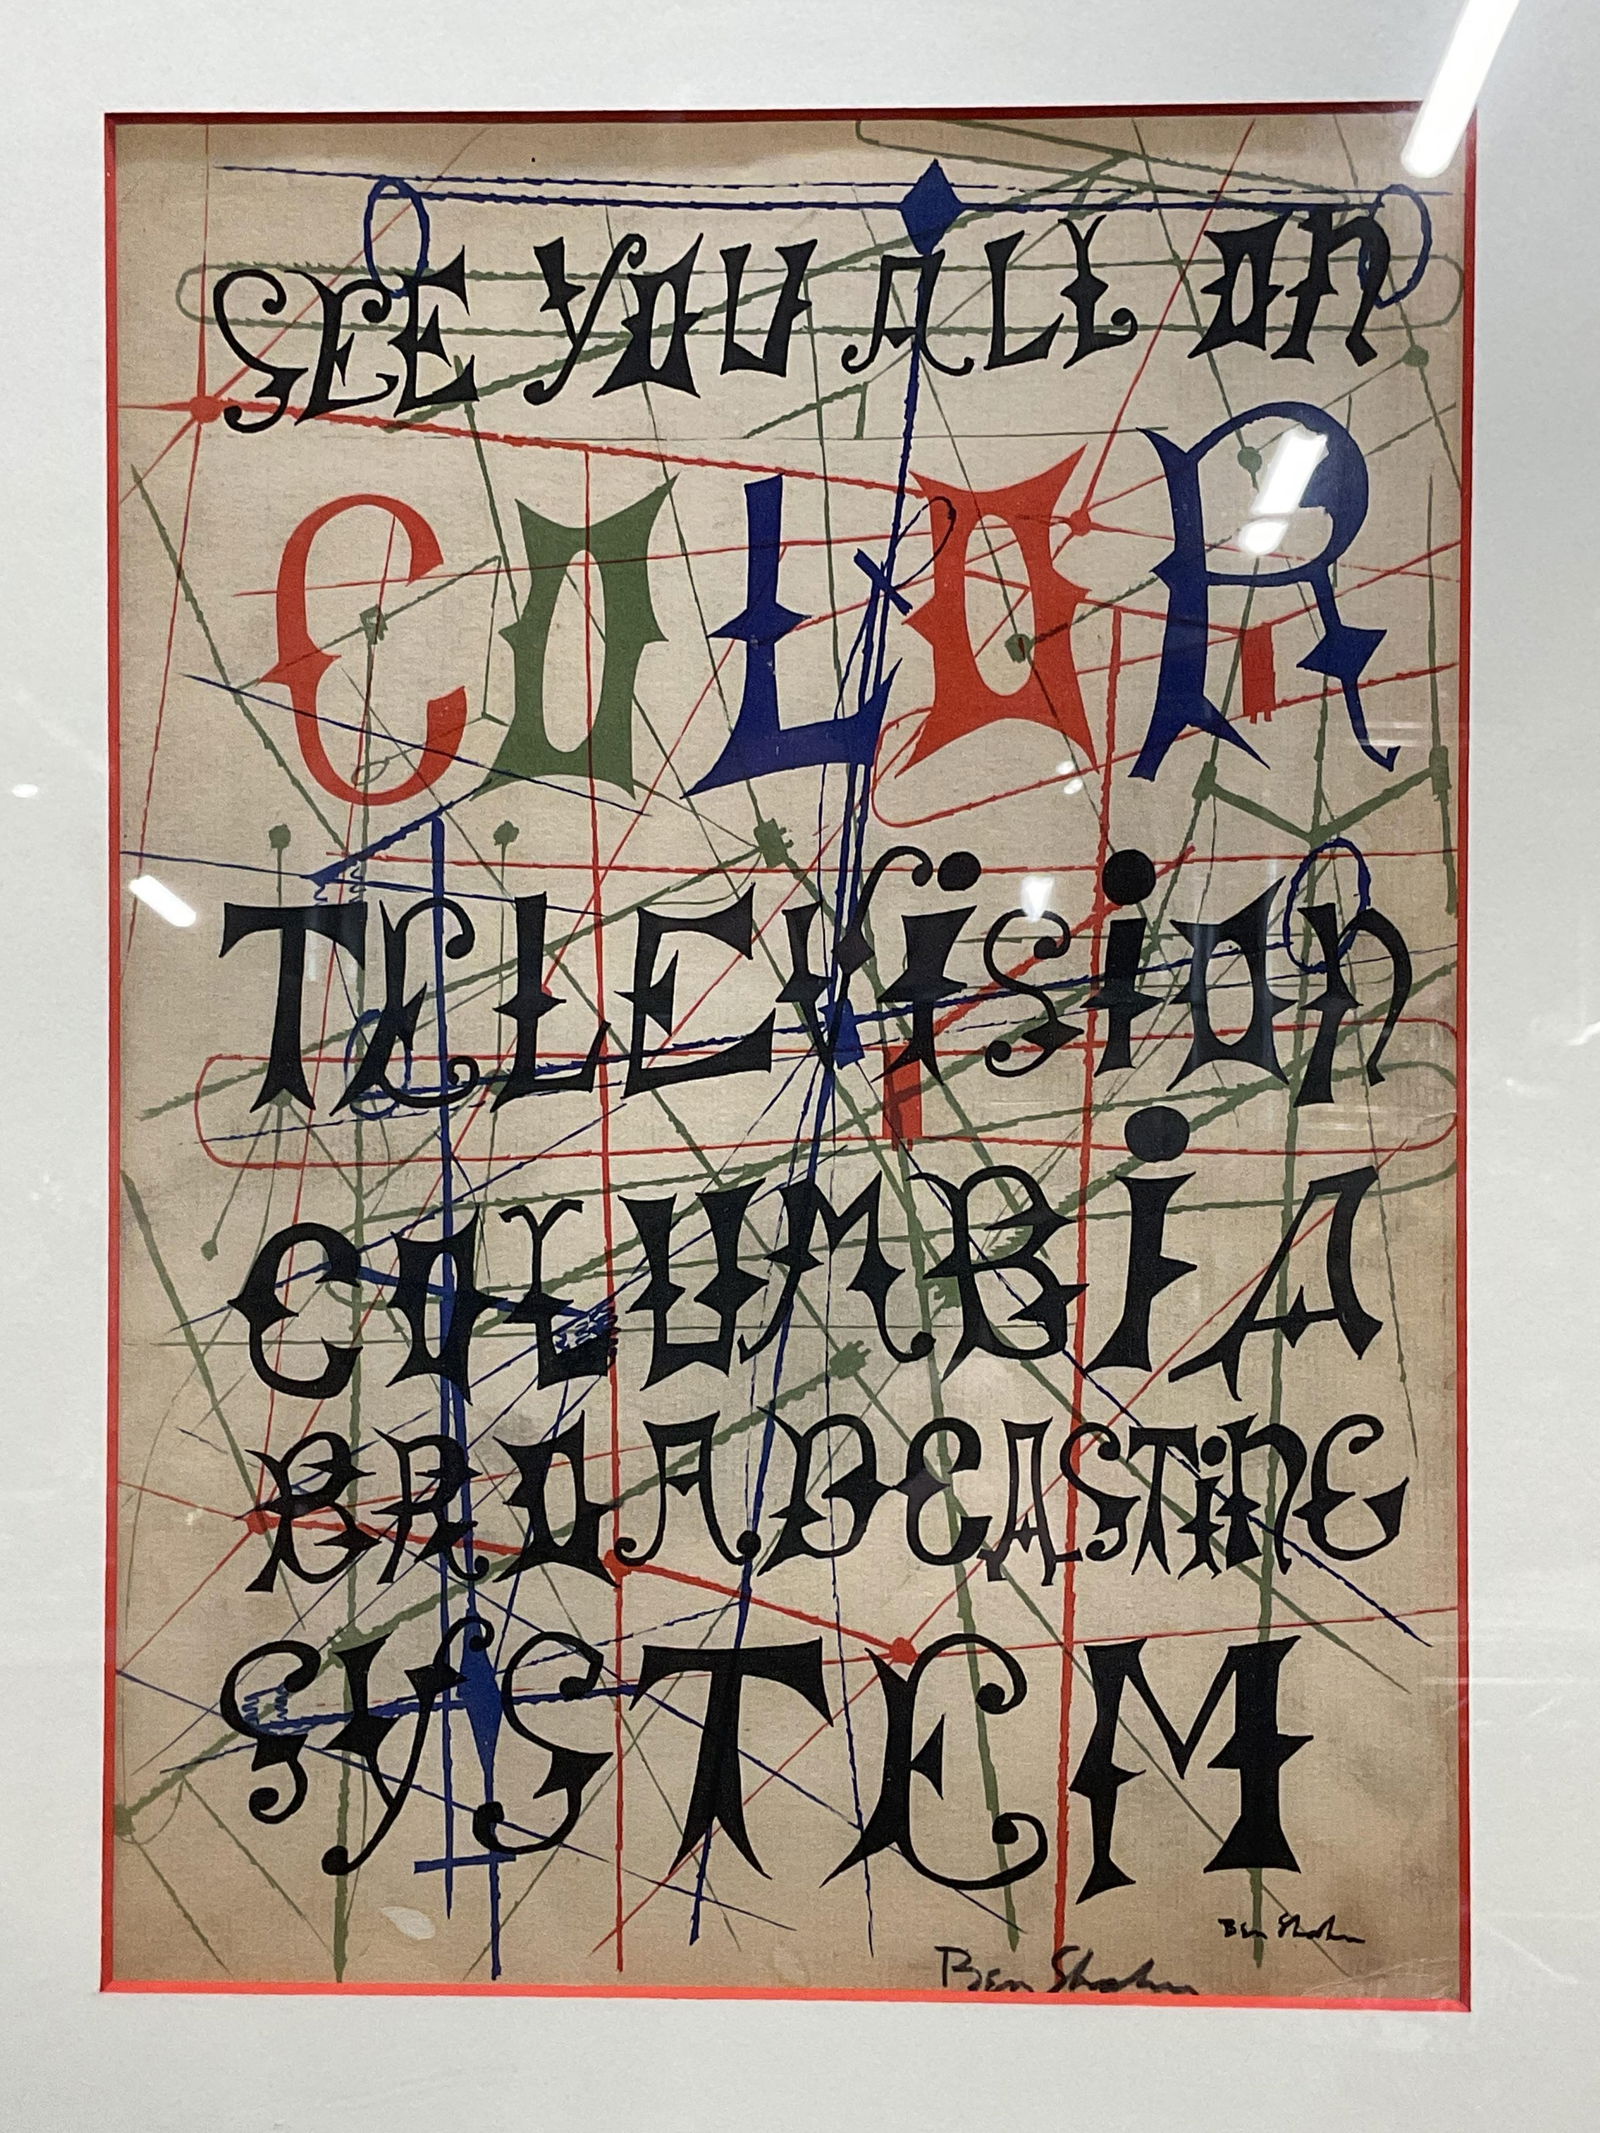 SEE YOU ALL ON
COLOR
TELEVISION
COLUMBIA
BROADCASTING
SYSTEM
Ben Shahn
Ben Shahn